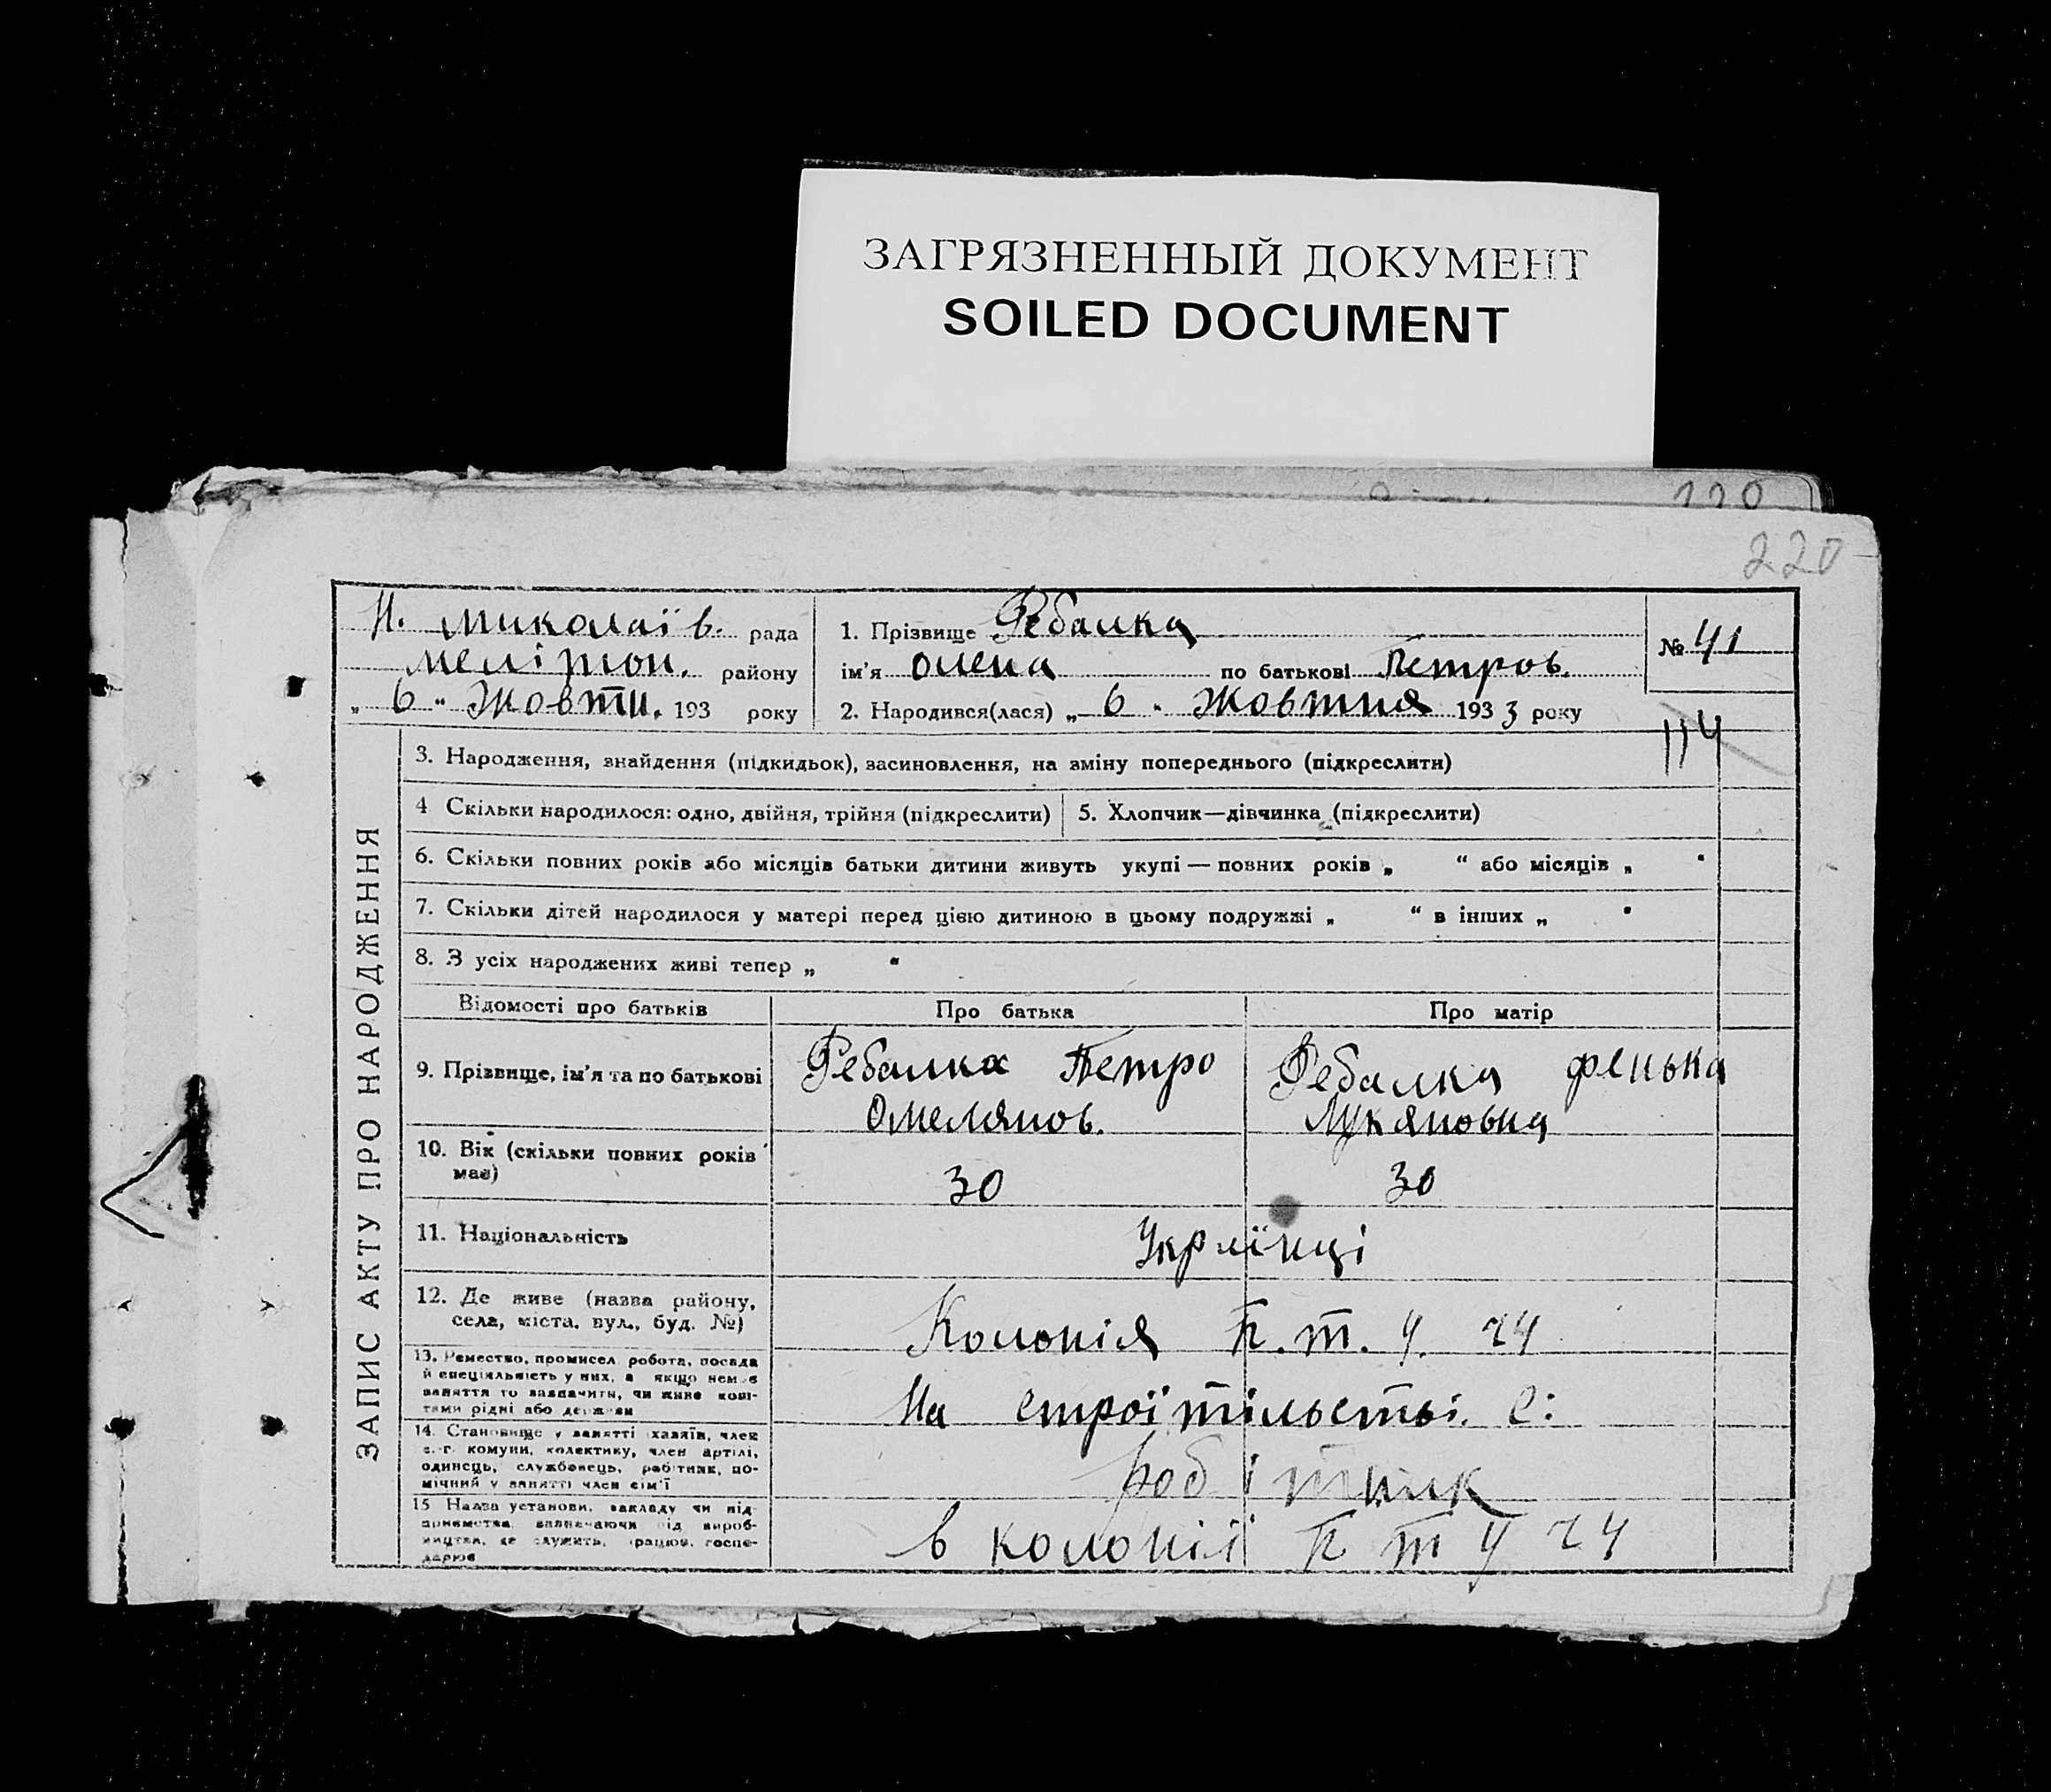 ЗАГРЯЗНЕННЫЙ ДОКУМЕНТ
SOILED DOCUMENT
220
Н. Миколаїв. рада
Мелітоп. району
„ 6 " Жовтн. 193 року
1. Прізвище Ребалка
ім'я Олена по батькові Петров.
2. Народився(лася) „ 6 " Жовтня 1933 року
№ 41
114
ЗАПИС АКТУ ПРО НАРОДЖЕННЯ
3. Народження, знайдення (підкидьок), засиновлення, на зміну попереднього (підкреслити)
4 Скільки народилося: одно, двійня, трійня (підкреслити)
5. Хлопчик—дівчинка (підкреслити)
6. Скільки повних років або місяців батьки дитини живуть укупі — повних років „ “ або місяців „ "
7. Скільки дітей народилося у матері перед цією дитиною в цьому подружжі „ “ в інших „ "
8. З усіх народжених живі тепер „ "
Відомості про батьків
Про батька
Про матір
9. Прізвище, ім'я та по батькові
Ребалка Петро
Омелянов.
Ребалка Фенька
Лукяновна
10. Вік (скільки повних років
має)
30
30
11. Національність
Українці
12. Де живе (назва району,
села, міста, вул., буд. №)
Колонія П. т. У. 24
13. Ремество, промисел робота, посада
й спеціяльність у них, а якщо немає
заняття то зазначити, чи живе кош-
тами рідні або держави
На строїтільстві. С:
14. Становище у занятті хазяїн, член
с.-г. комуни, колективу, член артілі,
одинець, службовець, робітник, по-
мічний у занятті член сім'ї
робітник
15 Назва установи, закладу чи під-
приємства, зазначаючи від вироб-
ництва, де служить, працює, госпо-
дарює
в колонії П т У 24